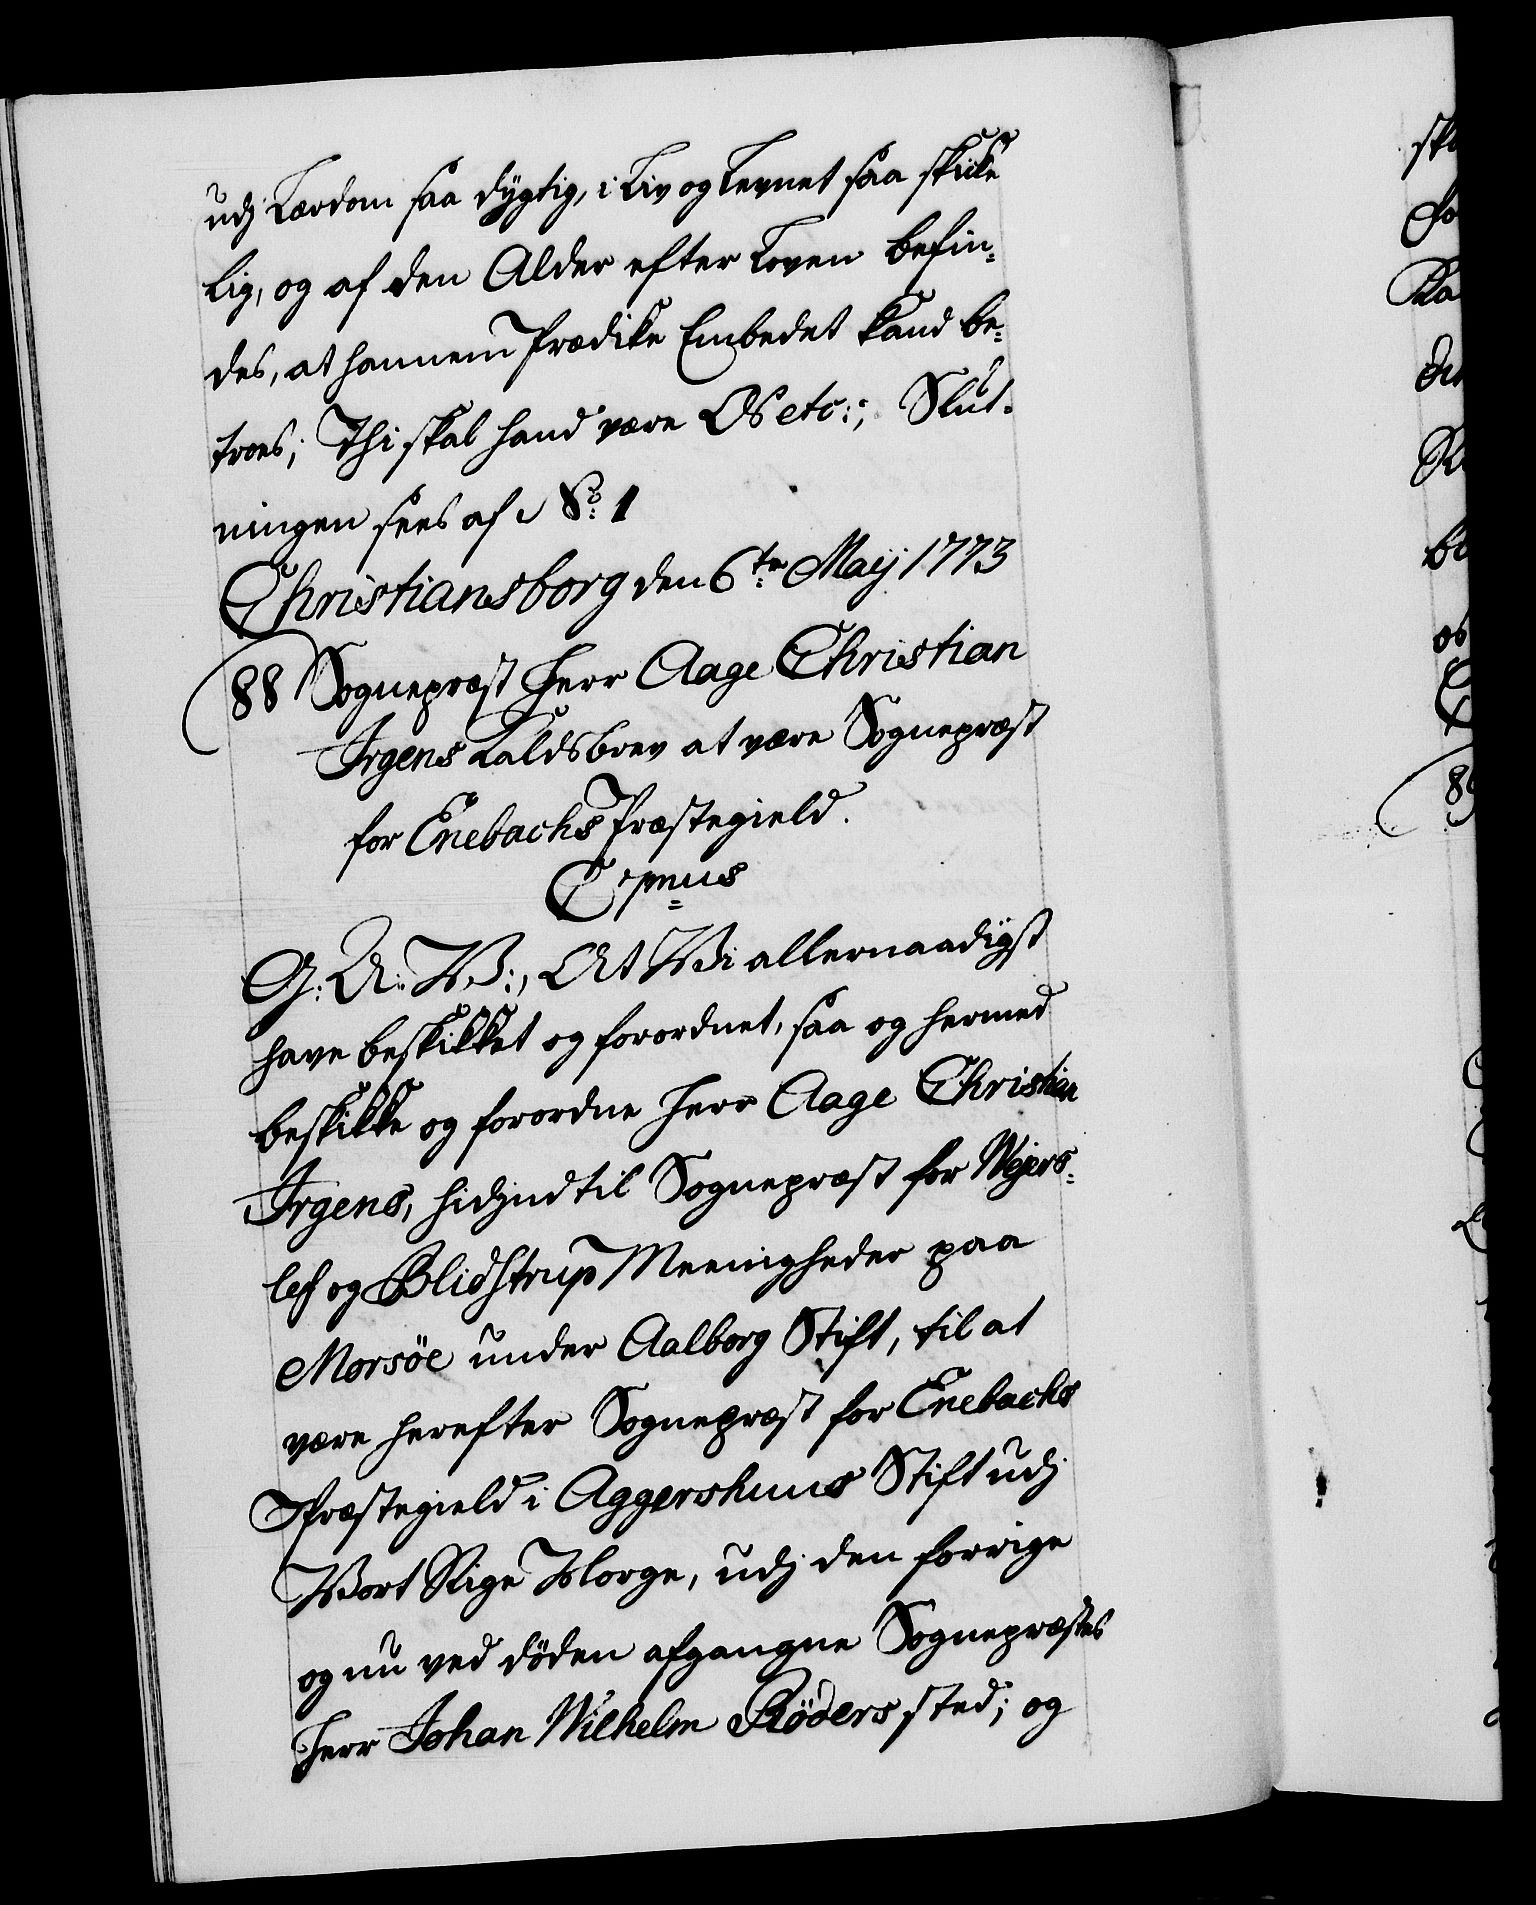 udj Lærdom saa dygtig, i Liv og Levnet saa skike
lig, og af den Alder efter Loven befin-
des, at hannem Prædike Embedet kand be-
troes; Thi skal hand være OS etc:; Slut-
ningen sees af No: 1
Christiansborg den 6te Maij 1773
88 Sognepræst Herr Aage Christian
Irgens Kaldsbrev at være Sognepræst
for Enebachs Præstegield.
C: 7mus
G: A: W:, At Wi allernaadigst
have beskikket og forordnet, saa og hermed
beskikke og forordne Herr Aage Christian
Irgens, hidindtil Sognepræst for Wejers-
lef og Blidstrup Meenigheder paa
Morsöe under Aalborg Stift, til at
være herefter Sognepræst for Enebachs
Præstegield i Aggershuus Stift udj
Vort Rige Norge, udj den forrige
og nu ved döden afgangne Sognepræstes
Herr Johan Wilhelm Röders sted; og